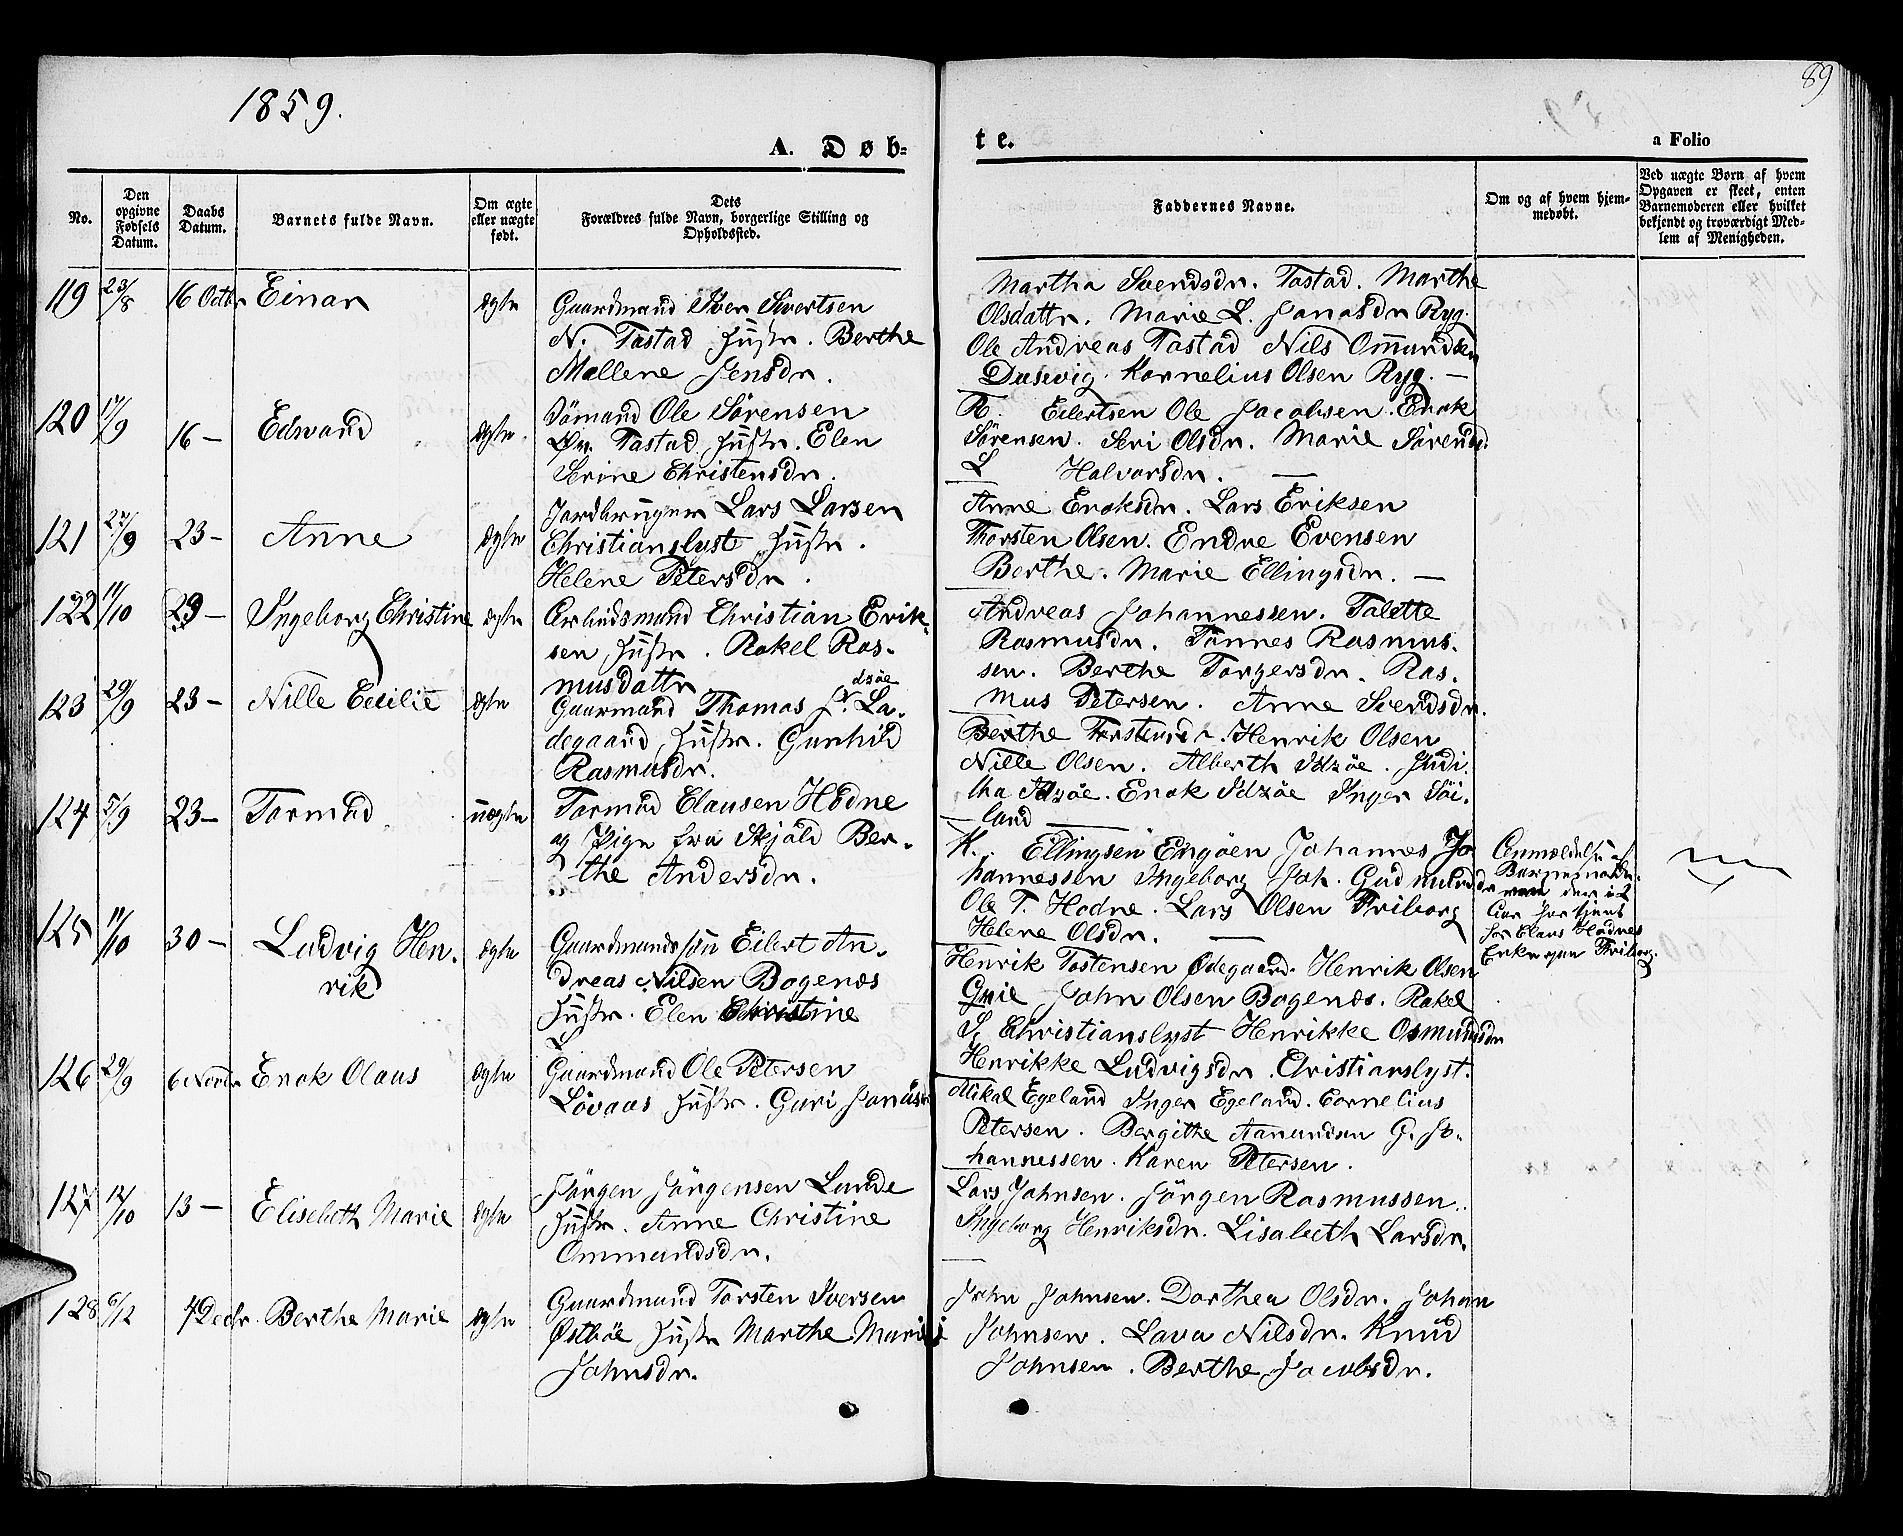 89
1859.
A. Døb-
te.
a Folio
No.
Den opgivne Fødsels Datum.
Daabs Datum.
Barnets fulde Navn.
Om ægte eller uægte født.
Dets Forældres fulde Navn, borgerlige Stilling og Opholdssted.
Faddernes Navne.
Om og af hvem hjemmedøbt.
Ved uægte Børn af hvem Opgaven er skeet, enten Barnemoderen eller hvilket bekjendt og troværdigt Medlem af Menigheden.
119 23/8 16 Octbr Einar ægte
Gaardmand Iver Sivertsen
N. Tastad Hustr. Berthe
Mallene Jensdr.
Martha Svendsdr. Tastad. Marthe
Olsdattr. Marie L. Jonasdr Ryg.
Ole Andreas Tastad Nils Omundsen
Dusevig. Kornelius Olsen Ryg. —
120 17/9 16 — Edward ægte
Sömand Ole Sörensen
Øv. Tastad Hustr. Elen
Serine Christensdr.
R. Eilertsen Ole Jacobsen. Enok
Sörensen. Seri Olsdr. Marie Sörensd.
L Halvorsdr. —
121 27/9 23 — Anne ægte
Jordbruger Lars Larsen
Christianslyst Hustr.
Helene Petersdr.
Anne Enoksdr. Lars Eriksen
Thorsten Olsen. Endre Evensen
Berthe. Marie Ellingsdr. —
122 11/10 23 — Ingeborg Christine ægte
Arbeidsmand Christian Erik-
sen Hustr. Rakel Ras-
musdattr
Andreas Johannessen. Talette
Rasmusdr. Tönnes Rasmus-
sen. Berthe Torgersdr. Ras-
mus Petersen. Anne Svendsdr.
123 29/9 23 — Nille Cecilie ægte
dsöe
Gaarmand Thomas J. La-
degaard, Hustr. Gunhild
Rasmusdr.
Berthe Torstensdr. Henrik Olsen
Nille Olsen. Alberth Idzöe. Judi-
tha Idzöe. Enok Idzöe Inger Söi-
land —
124 5/9 23 — Tormod uægte
Tormod Clausen Hodne
og Pige fra Skjold Ber-
the Andersdr.
K. Ellingsen Engöen Johannes Jo
hannessen Ingeborg Joh. Gudmundsdr
Ole T. Hodne. Lars Olsen Friborg
Helene Olsdr. —
125 11/10 30 — Ludvig Hen-
rik
ægte
Gaardmandssön Eilert An-
dreas Nilsen Bogenes
Hustr. Elen Christine
Henrik Tostensen Ødegaard. Henrik Olsen
John Olsen Bogenes. Rakel
S. Christianslyst Henrikke Osmundsdr
Henrikke Ludvigsdr. Christianslyst.
126 29/9 6 Novbr Enok Olaus ægte
Gaardmand Ole Petersen
Lövaas Hustr. Guri Jonasdr
Mikal Egeland Inger Egeland. Cornelius
Petersen. Bergithe Aanundsen G. Jo-
hannessen. Karen Petersen.
127 12/10 13 — Elisebeth Marie ægte
Jörgen Jörgensen Lunde
Hustr. Anne Christine
Ommundsdr.
Lars Johnsen. Jörgen Rasmussen.
Ingeborg Henriksdr. Lisabeth Larsdr.
128 6/12 4 Decbr. Berthe Marie ægte
Gaardmand Torsten Iversen
Østböe Hustr Marthe Marie
Johnsdr.
John Johnsen. Dorthea Olsdr. Johan
Johnsen. Lava Nilsdr. Knud
Johnsen. Berthe Jacobsdr.